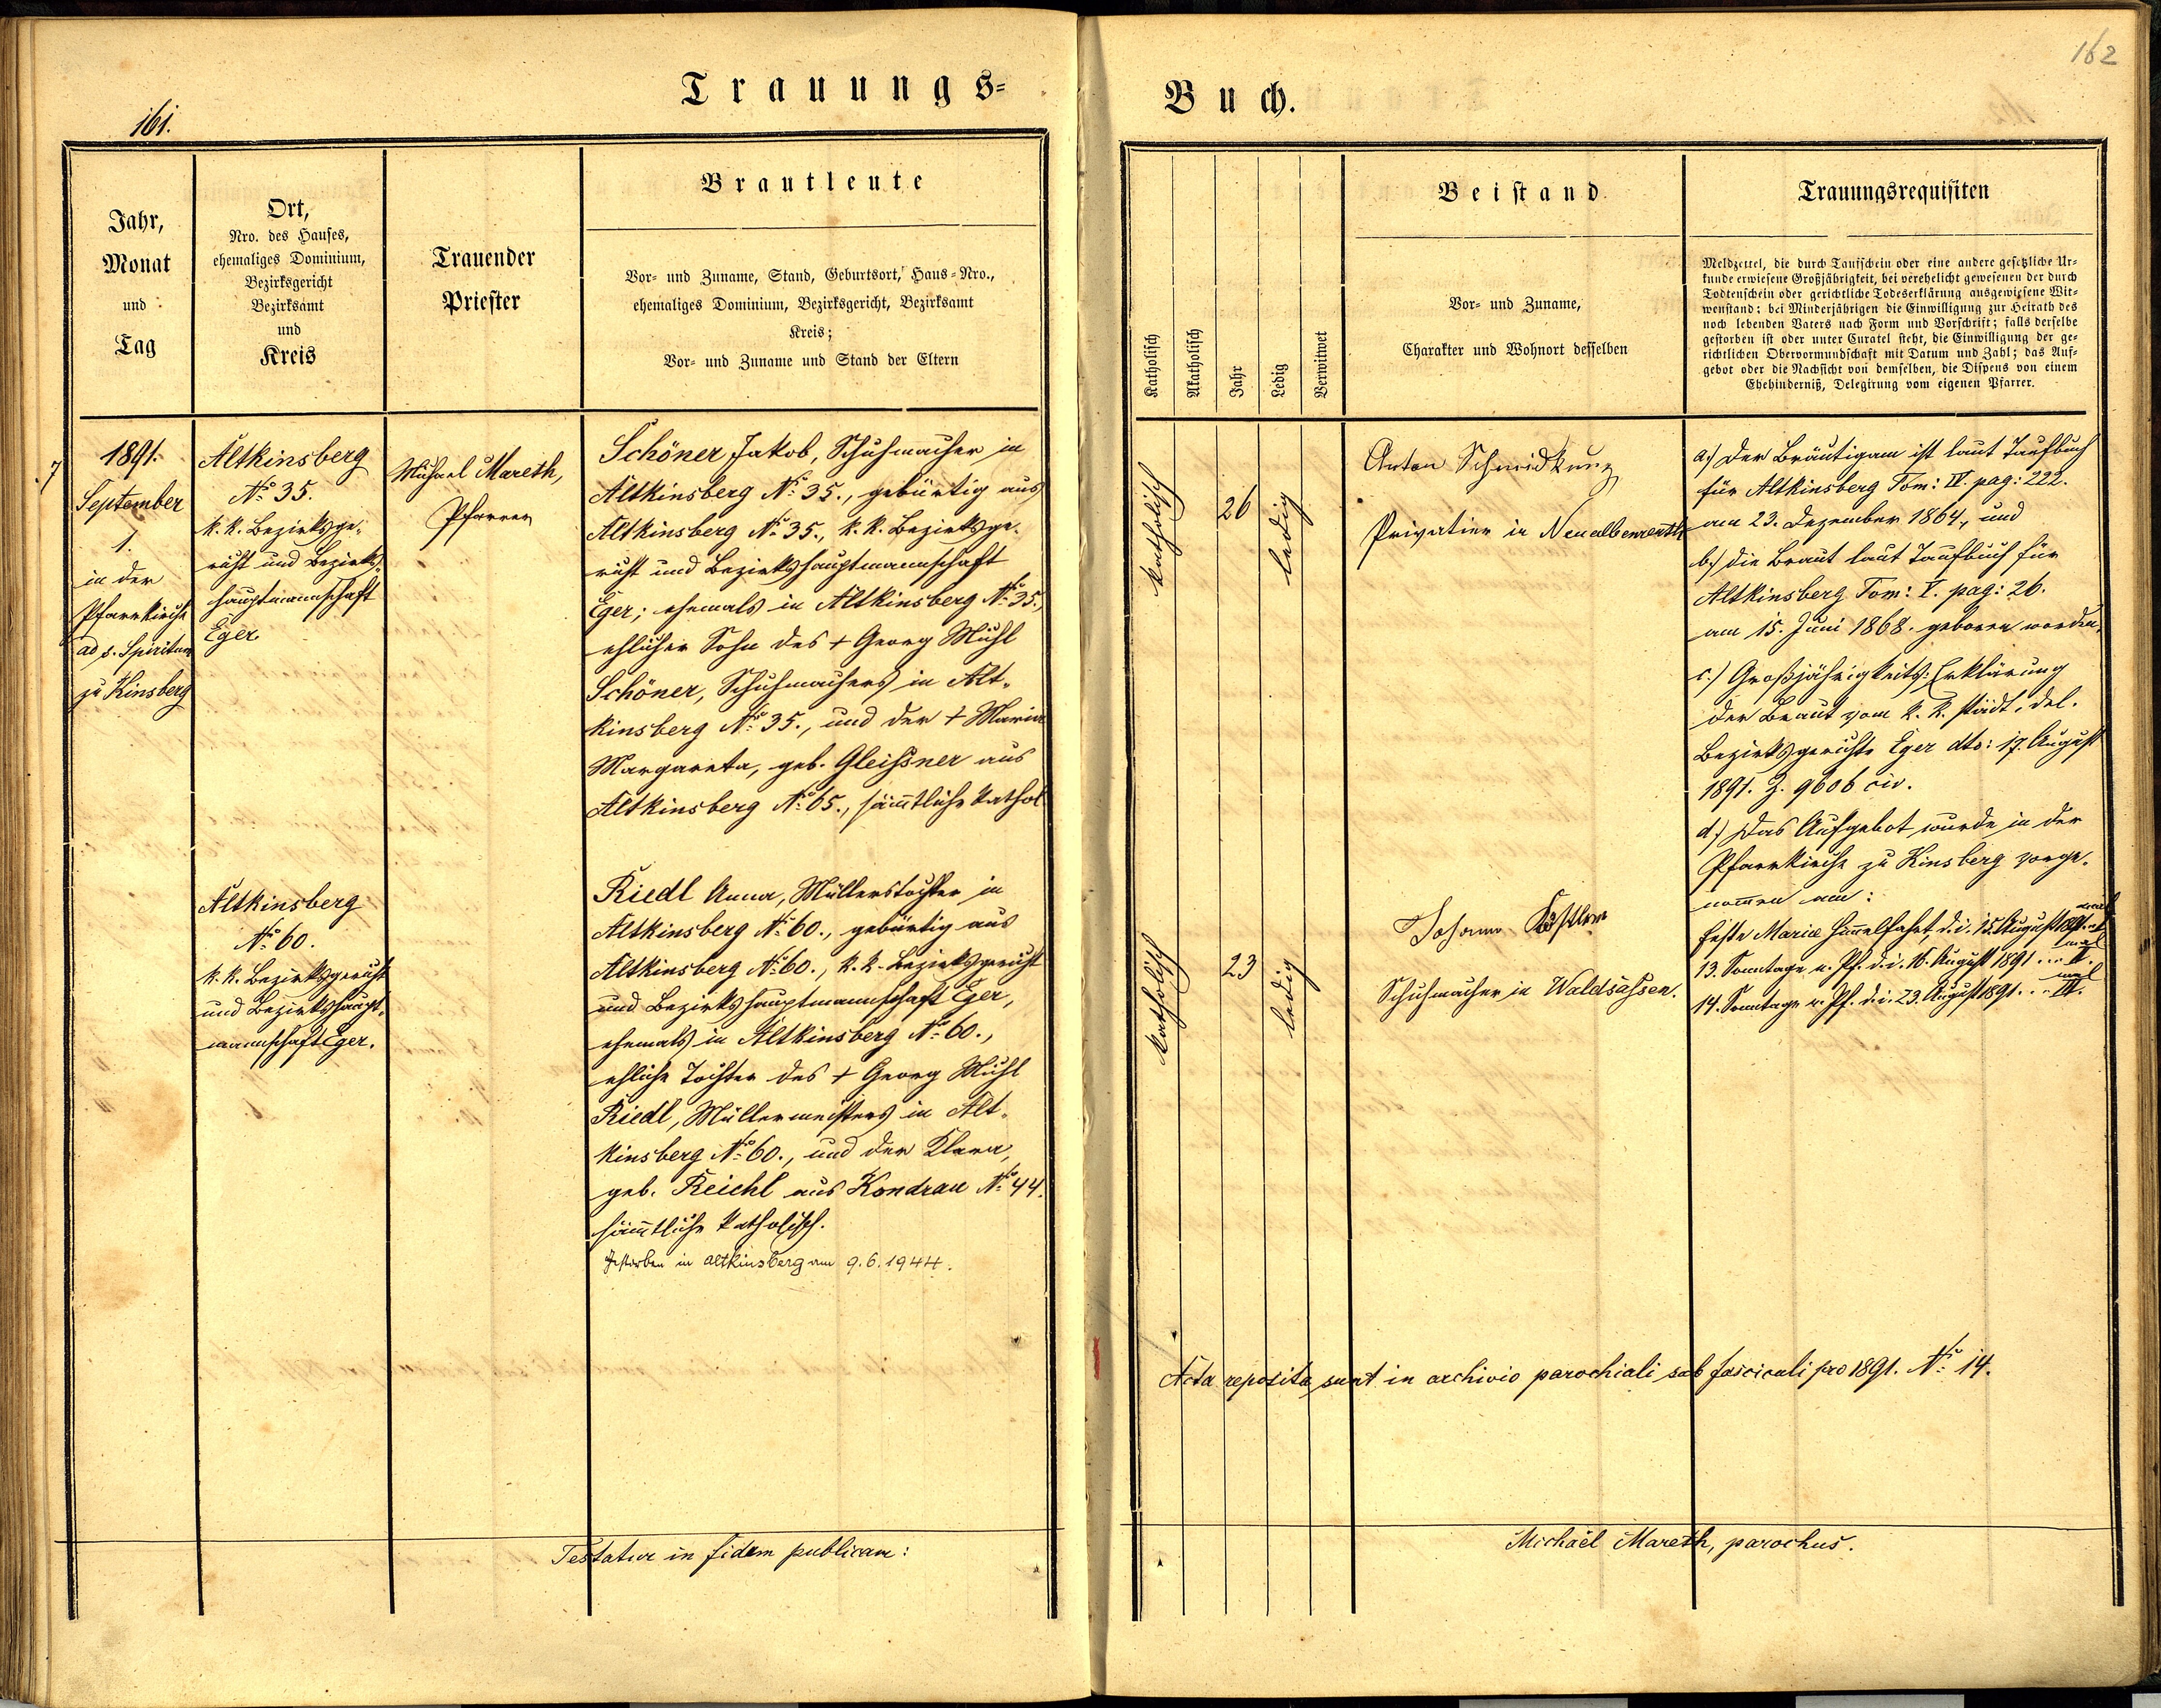 Trauungs-
161.
Jahr,
Monat
und
Tag
Ort,
Nro. des Hauses,
ehemaliges Dominium,
Bezirksgericht
Bezirksamt
und
Kreis
Trauender
Priester
Brautleute
Vor- und Zuname, Stand, Geburtsort, Haus-Nro.,
ehemaliges Dominium, Bezirksgericht, Bezirksamt
Kreis;
Vor- und Zuname und Stand der Eltern
7
1891.
September
1.
in der
Pfarrkirche
ad s. Spiritum
zu Kinsberg
Altkinsberg
No 35.
k. k. Bezirksge-
richt und Bezirks-
hauptmannschaft
Eger.
Michael Mareth,
Pfarrer
Schöner Jakob, Schuhmacher in
Altkinsberg No 35., gebürtig aus
Altkinsberg No 35., k. k. Bezirksge-
richt und Bezirkshauptmannschaft
Eger; ehemals in Altkinsberg No 35.,
ehlicher Sohn des + Georg Michl
Schöner, Schuhmachers in Alt-
kinsberg No 35., und der + Maria
Margareta, geb. Gleißner aus
Altkinsberg No 65., sämtliche kathol
Altkinsberg
No 60.
k. k. Bezirksgericht
und Bezirkshaupt-
mannschaft Eger.
Riedl Anna, Müllerstochter in
Altkinsberg No 60., gebürtig aus
Altkinsberg No 60., k. k. Bezirksgericht
und Bezirkshauptmannschaft Eger,
ehemals in Altkinsberg No 60.,
ehliche Tochter des + Georg Michl
Riedl, Müllermeisters in Alt-
kinsberg No 60., und der Klara,
geb. Reichl aus Kondrau No 44.
sämtliche katholisch.
Gestorben in Altkinsberg am 9.6.1944.
Testatur in fidem publicam:
162
Buch.
Katholisch
Akatholisch
Jahr
Ledig
Verwitwet
Beistand
Vor- und Zuname,
Charakter und Wohnort desselben
Trauungsrequisiten
Meldzettel, die durch Taufschein oder eine andere gesetzliche Ur-
kunde erwiesene Großjährigkeit, bei verehelicht gewesenen der durch
Todtenschein oder gerichtliche Todeserklärung ausgewiesene Wit-
wenstand; bei Minderjährigen die Einwilligung zur Heirath des
noch lebenden Vaters nach Form und Vorschrift; falls derselbe
gestorben ist oder unter Curatel steht, die Einwilligung der ge-
richtlichen Obervormundschaft mit Datum und Zahl; das Auf-
gebot oder die Nachsicht von demselben, die Dispens von einem
Ehehinderniß, Delegirung vom eigenen Pfarrer.
katholisch
26
ledig
Anton Schneidkunz
Privatier in Neualbenreuth
a.) Der Bräutigam ist laut Taufbuch
für Altkinsberg Tom: IV. pag: 222.
am 23. Dezember 1864, und
b.) die Braut laut Taufbuch für
Altkinsberg Tom: V. pag: 26.
am 15. Juni 1868. geboren worden.
c.) Großjährigkeits-Erklärung
der Braut vom k. k. städt. del.
Bezirksgerichte Eger dto: 17. August
1891. Z. 9606 civ.
d.) Das Aufgebot wurde in der
Pfarrkirche zu Kinsberg vorge-
nommen am:
Feste Mariæ Himmelfahrt, d. i. 15. August 1891
13. Sonntage n. Pf. d. i. 16. August 1891 ... II. mal
14. Sonntage n. Pf. d. i. 23. August 1891 ... III. mal
katholisch
23
ledig
Johann
Schuhmacher in Waldsassen.
Acta reposita sunt in archivio parochiali sub fasciculi pro 1891. No 14.
Michaël Mareth, parochus.